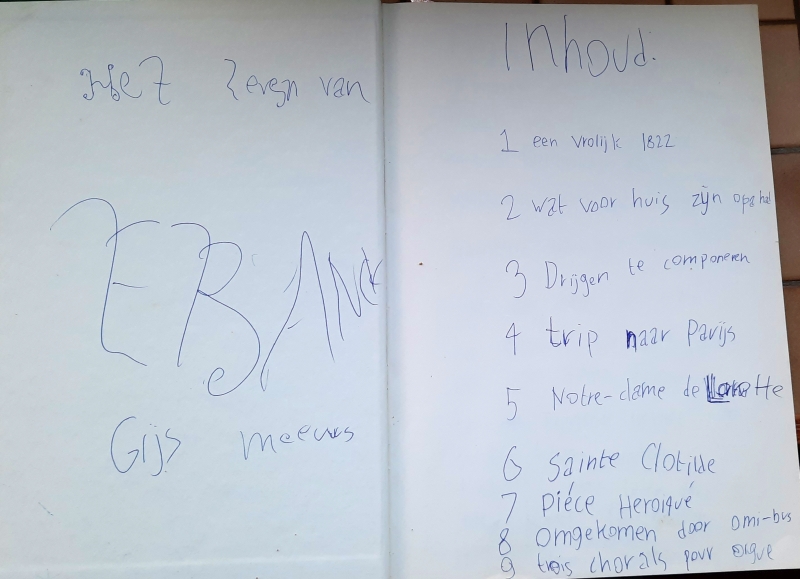 Het leven van
Gijs meeuws
Inhoud:
1 een vrolijk 1822
2 wat voor huis zijn opa had
3 Drijgen te componeren
4 trip naar Parijs
5 Notre-dame de Lorette
6 Sainte Clotilde
7 Piéce Heroiqué
8 omgekomen door omi-bus
9 trois chorals pour orgue